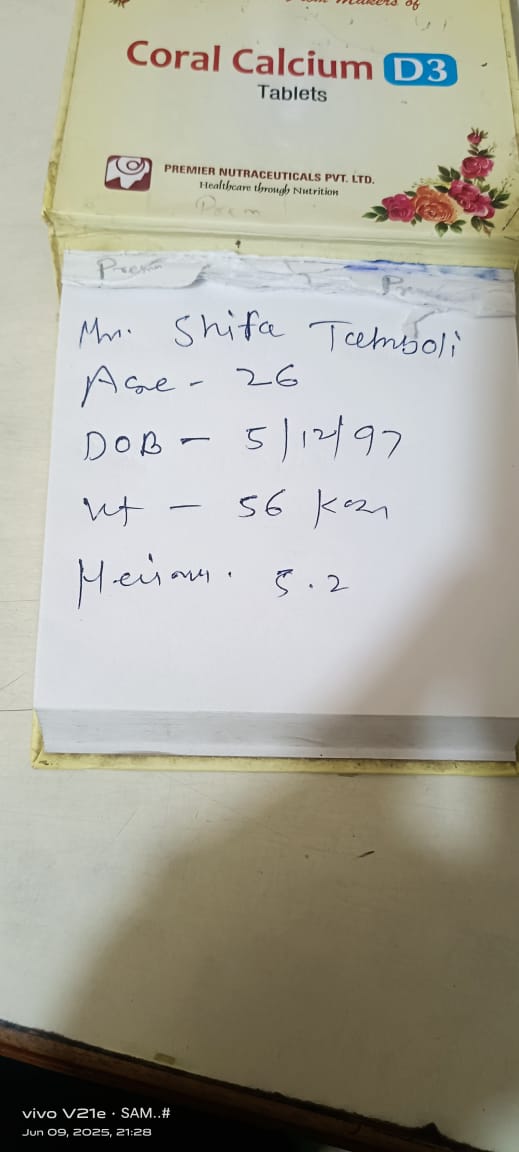 Makers of
Coral Calcium D3
Tablets
PREMIER NUTRACEUTICALS PVT. LTD.
Healthcare through Nutrition
Prem
Shifa Tamboli
Age - 26
DOB - 5/12/97
wt - 56
5.2
vivo V21e · SAM..#
Jun 09, 2025, 21:28